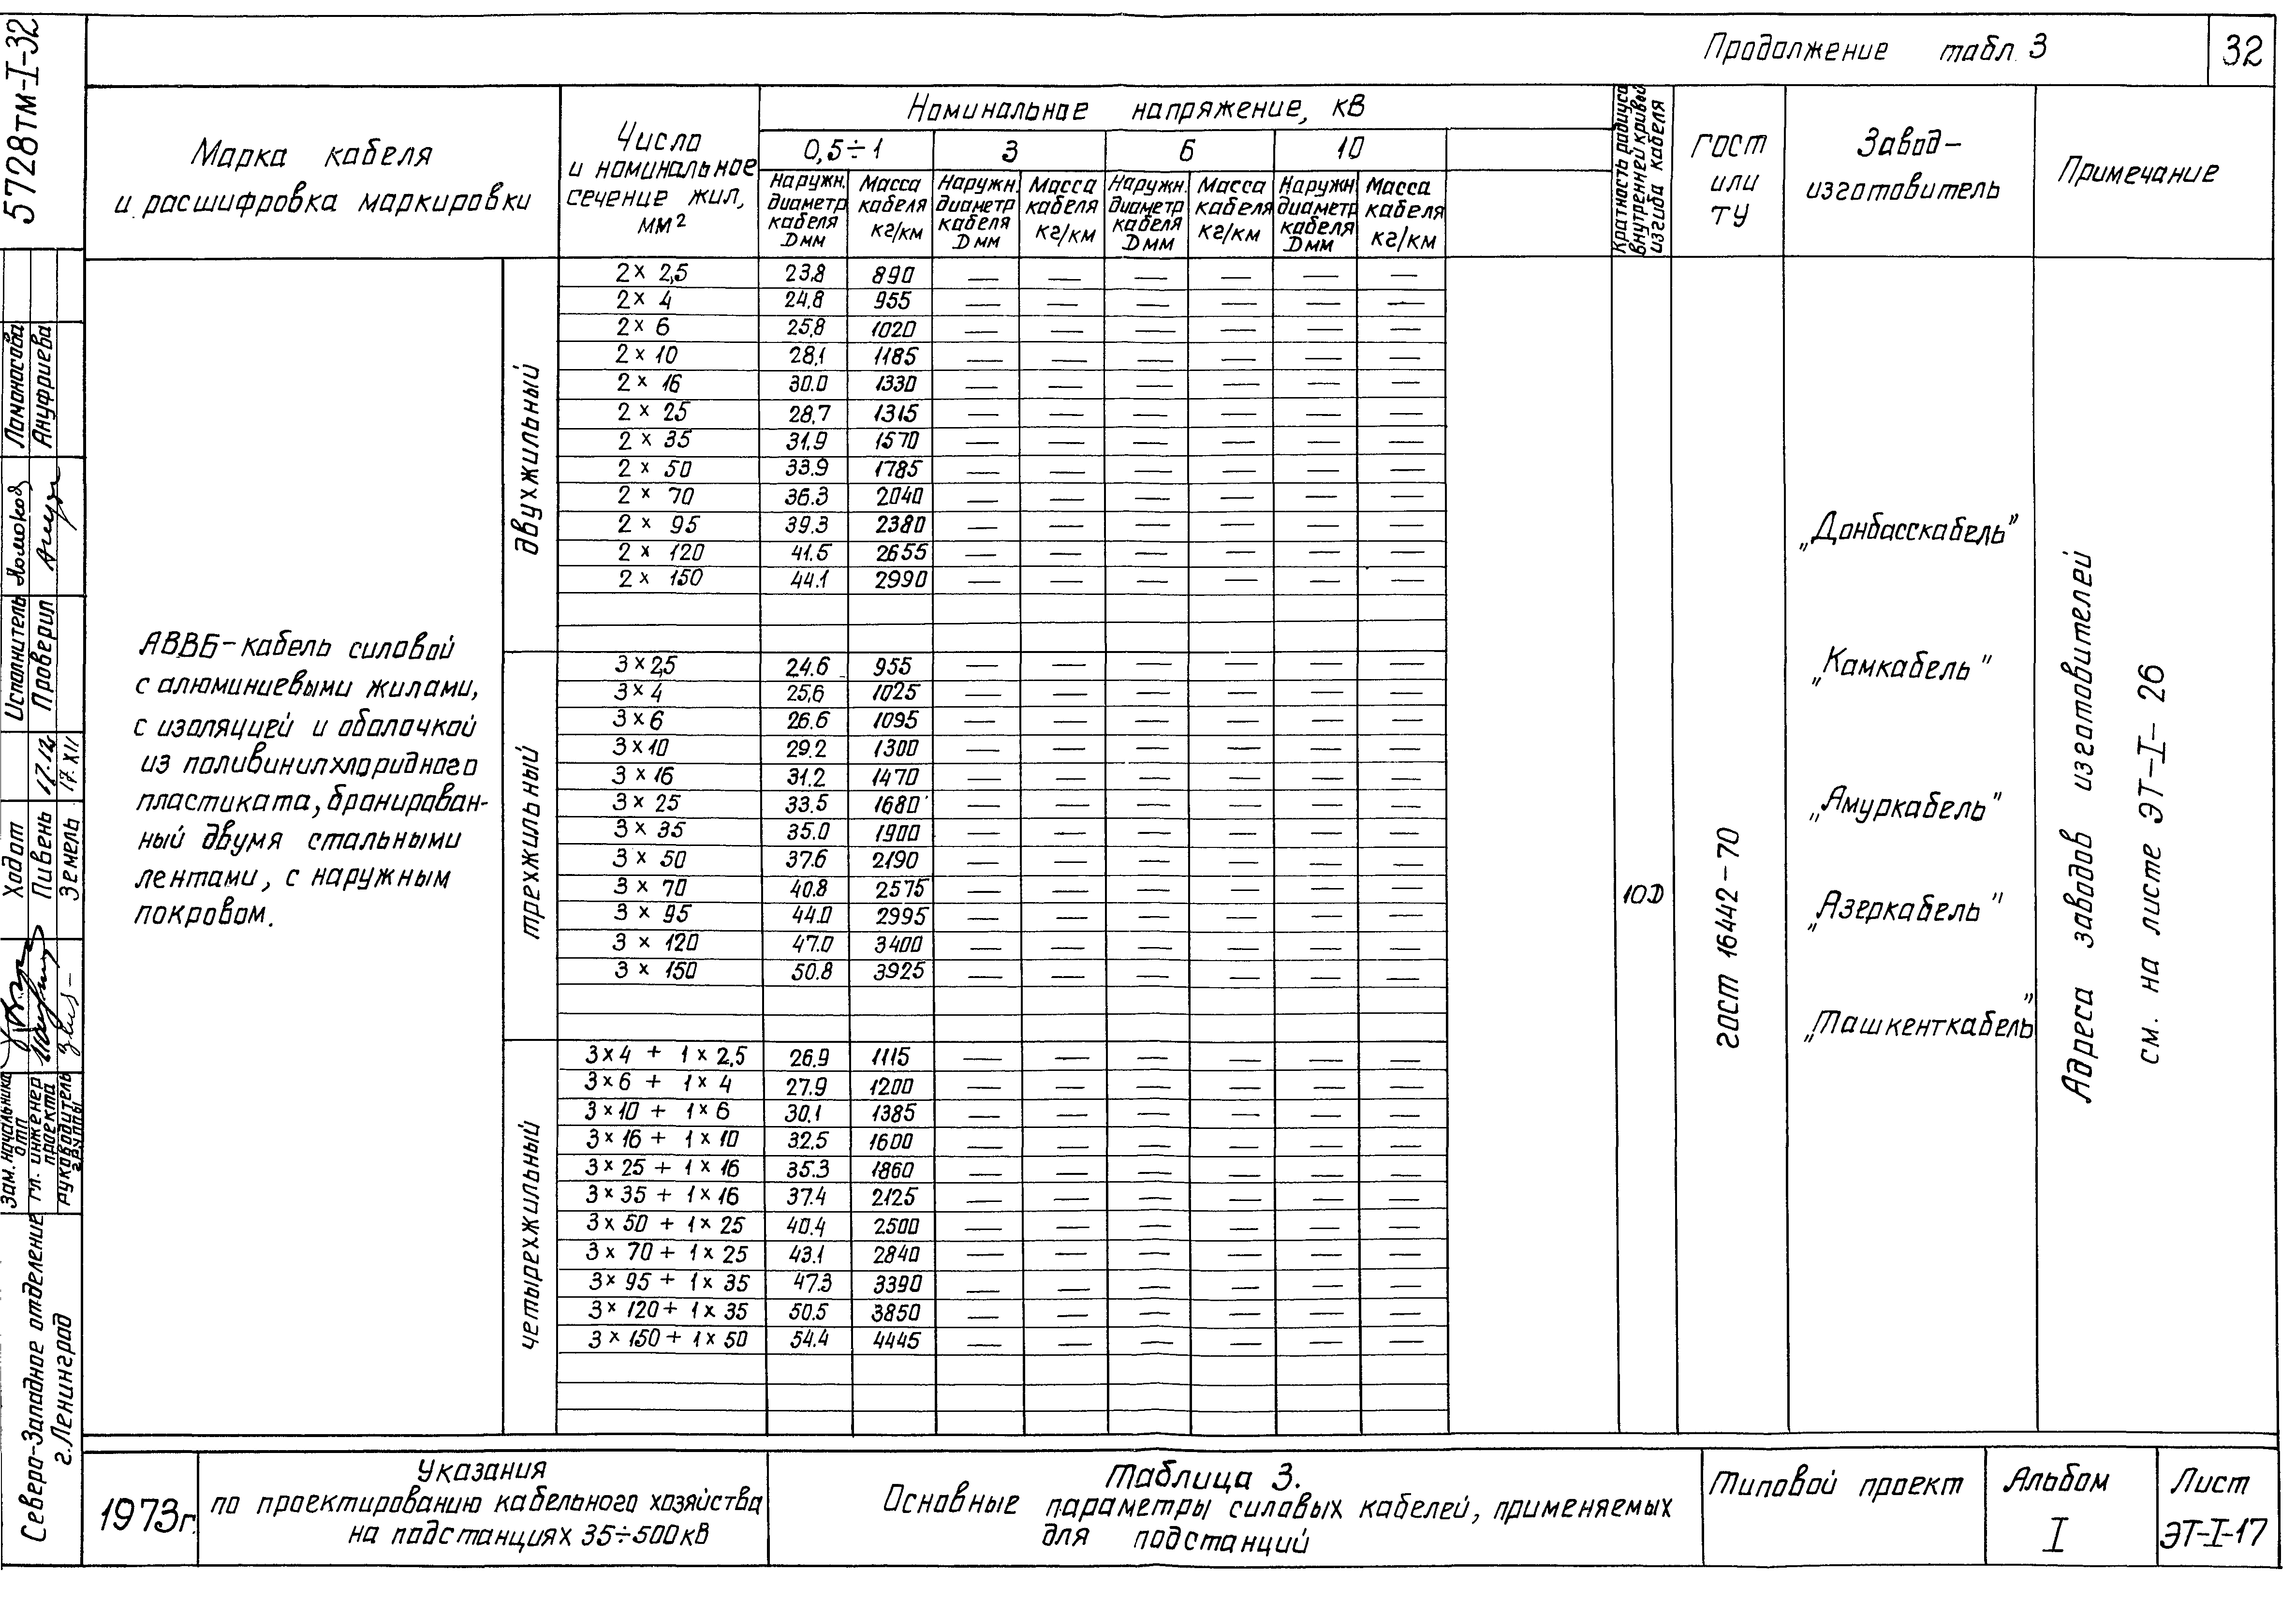 Продолжение табл. 3
32
5728тм-I-32
Марка кабеля
и расшифровка маркировки
Число
и номинальное
сечение жил,
мм²
Номинальное напряжение, кВ
0,5÷1 3 6 10
Наружн. диаметр кабеля D мм
Масса кабеля кг/км
Наружн. диаметр кабеля D мм
Масса кабеля кг/км
Наружн. диаметр кабеля D мм
Масса кабеля кг/км
Наружн. диаметр кабеля D мм
Масса кабеля кг/км
Кратность радиуса
внутренней кривой
изгиба кабеля
ГОСТ
или
ТУ
Завод-
изготовитель
Примечание
АВВБ-кабель силовой
с алюминиевыми жилами,
с изоляцией и оболочкой
из поливинилхлоридного
пластиката, бронирован-
ный двумя стальными
лентами, с наружным
покровом.
двухжильный
2 × 2,5 23.8 890 — — — — — —
2 × 4 24.8 955 — — — — — —
2 × 6 25,8 1020 — — — — — —
2 × 10 28,1 1185 — — — — — —
2 × 16 30.0 1330 — — — — — —
2 × 25 28,7 1315 — — — — — —
2 × 35 31,9 1570 — — — — — —
2 × 50 33.9 1785 — — — — — —
2 × 70 36.3 2040 — — — — — —
2 × 95 39.3 2380 — — — — — —
2 × 120 41.5 2655 — — — — — —
2 × 150 44.1 2990 — — — — — —
трехжильный
3 × 2,5 24.6 955 — — — — — —
3 × 4 25,6 1025 — — — — — —
3 × 6 26.6 1095 — — — — — —
3 × 10 29.2 1300 — — — — — —
3 × 16 31.2 1470 — — — — — —
3 × 25 33.5 1680 — — — — — —
3 × 35 35.0 1900 — — — — — —
3 × 50 37.6 2190 — — — — — —
3 × 70 40.8 2575 — — — — — —
3 × 95 44.0 2995 — — — — — —
3 × 120 47.0 3400 — — — — — —
3 × 150 50.8 3925 — — — — — —
четырехжильный
3×4 + 1×2,5 26.9 1115 — — — — — —
3×6 + 1×4 27.9 1200 — — — — — —
3×10 + 1×6 30.1 1385 — — — — — —
3×16 + 1×10 32.5 1600 — — — — — —
3×25 + 1×16 35.3 1860 — — — — — —
3×35 + 1×16 37.4 2125 — — — — — —
3×50 + 1×25 40.4 2500 — — — — — —
3×70 + 1×25 43.1 2840 — — — — — —
3×95 + 1×35 47.3 3390 — — — — — —
3×120 + 1×35 50.5 3850 — — — — — —
3×150 + 1×50 54.4 4445 — — — — — —
10D
ГОСТ 16442-70
„Донбасскабель”
„Камкабель”
„Амуркабель”
„Азеркабель”
„Ташкенткабель”
Адреса заводов изготовителей
см. на листе ЭТ-I-26
Исполнитель
Проверил Ануфриева
Зам. начальника ОТП Ходот
Гл. инженер проекта Пивень 17.12
Руководитель группы Земель 17.XII
Северо-Западное отделение
г. Ленинград
1973г.
Указания
по проектированию кабельного хозяйства
на подстанциях 35÷500кВ
Таблица 3.
Основные параметры силовых кабелей, применяемых
для подстанций
Типовой проект
Альбом
I
Лист
ЭТ-I-17